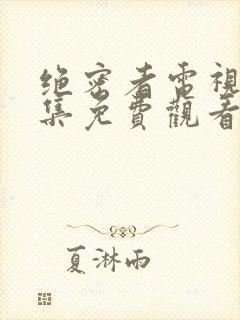 绝密者電視
集免費觀看
夏淋雨